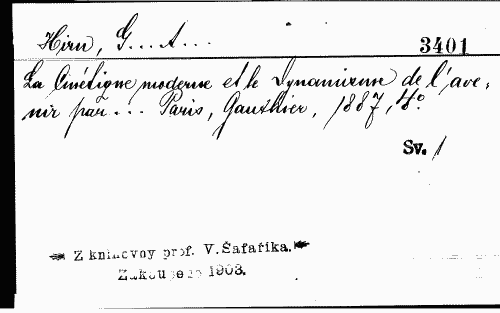 Hirn, G... A...
3401
La Cinétique moderne et le Dynamisme de l'ave-
nir par... Paris, Gauthier, 1887, 4°.
Sv. 1
Z knihovny prof. V. Šafaříka.
Zakoupeno 1903.